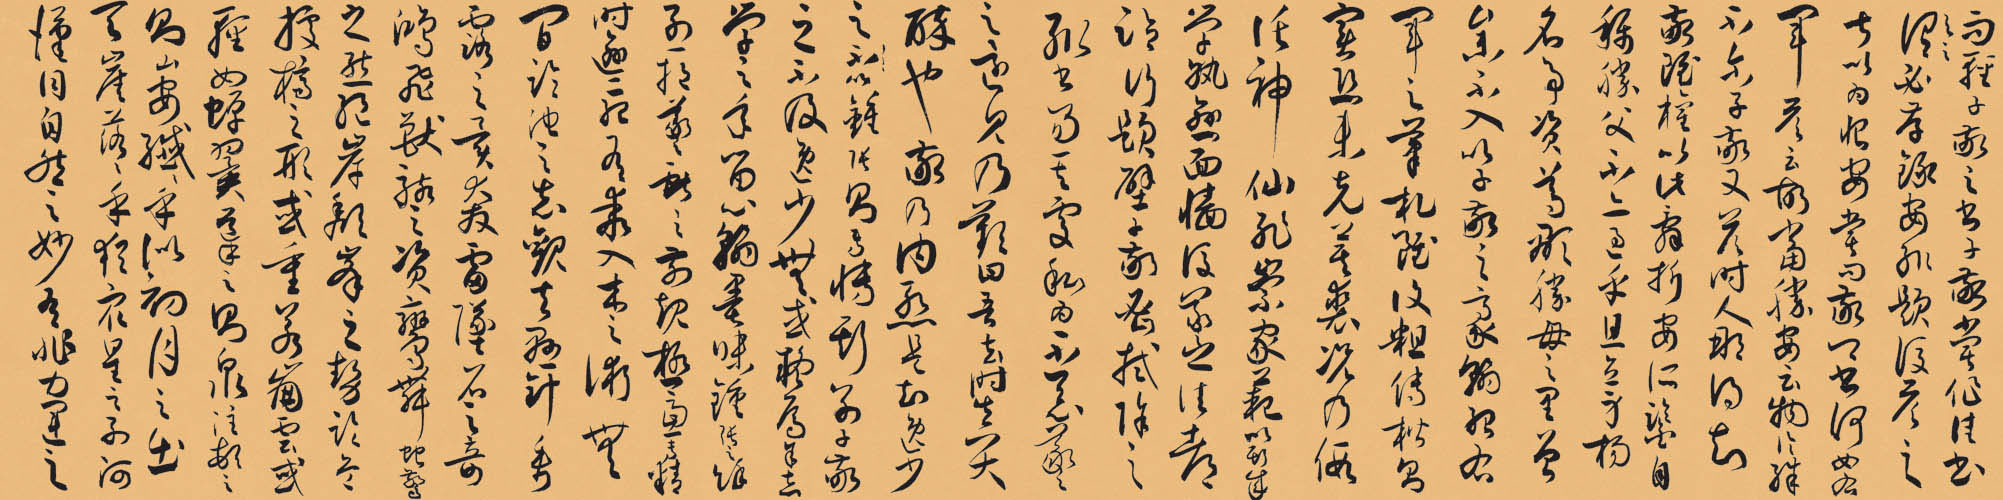 而輕子敬之書子敬嘗作佳書
與之謂必存錄安輒題後答之
甚以為恨安嘗問敬卿書何如右
軍答云故當勝安云物論殊
不尔子敬又答時人那得知
敬雖權以此辭折安所鑒自
稱勝父不亦過乎且立身揚
名事資尊顯勝母之里曾
參不入以子敬之豪翰紹右
軍之筆札雖復粗傳楷則
實恐未克箕裘況乃假
託神仙恥崇家範以斯成
學孰愈面牆後羲之往都
臨行題壁子敬密拭除之
輒書易其處私為不惡羲
之還見乃歎曰吾去時真大
醉也敬乃內慚是知逸少
之比鍾張則專博斯別子敬
之不及逸少無或疑焉余志
學之年留心翰墨味鍾張之餘
烈挹羲獻之前規極慮專精
時逾二紀有乖入木之術無
間臨池之志觀夫懸針垂
露之異奔雷墜石之奇
鴻飛獸駭之資鸞舞蛇驚
之態絕岸頹峰之勢臨危
據槁之形或重若崩雲或
輕如蟬翼導之則泉注頓之
則山安纖纖乎似初月之出
天崖落落乎猶眾星之列河
漢同自然之妙有非力運之